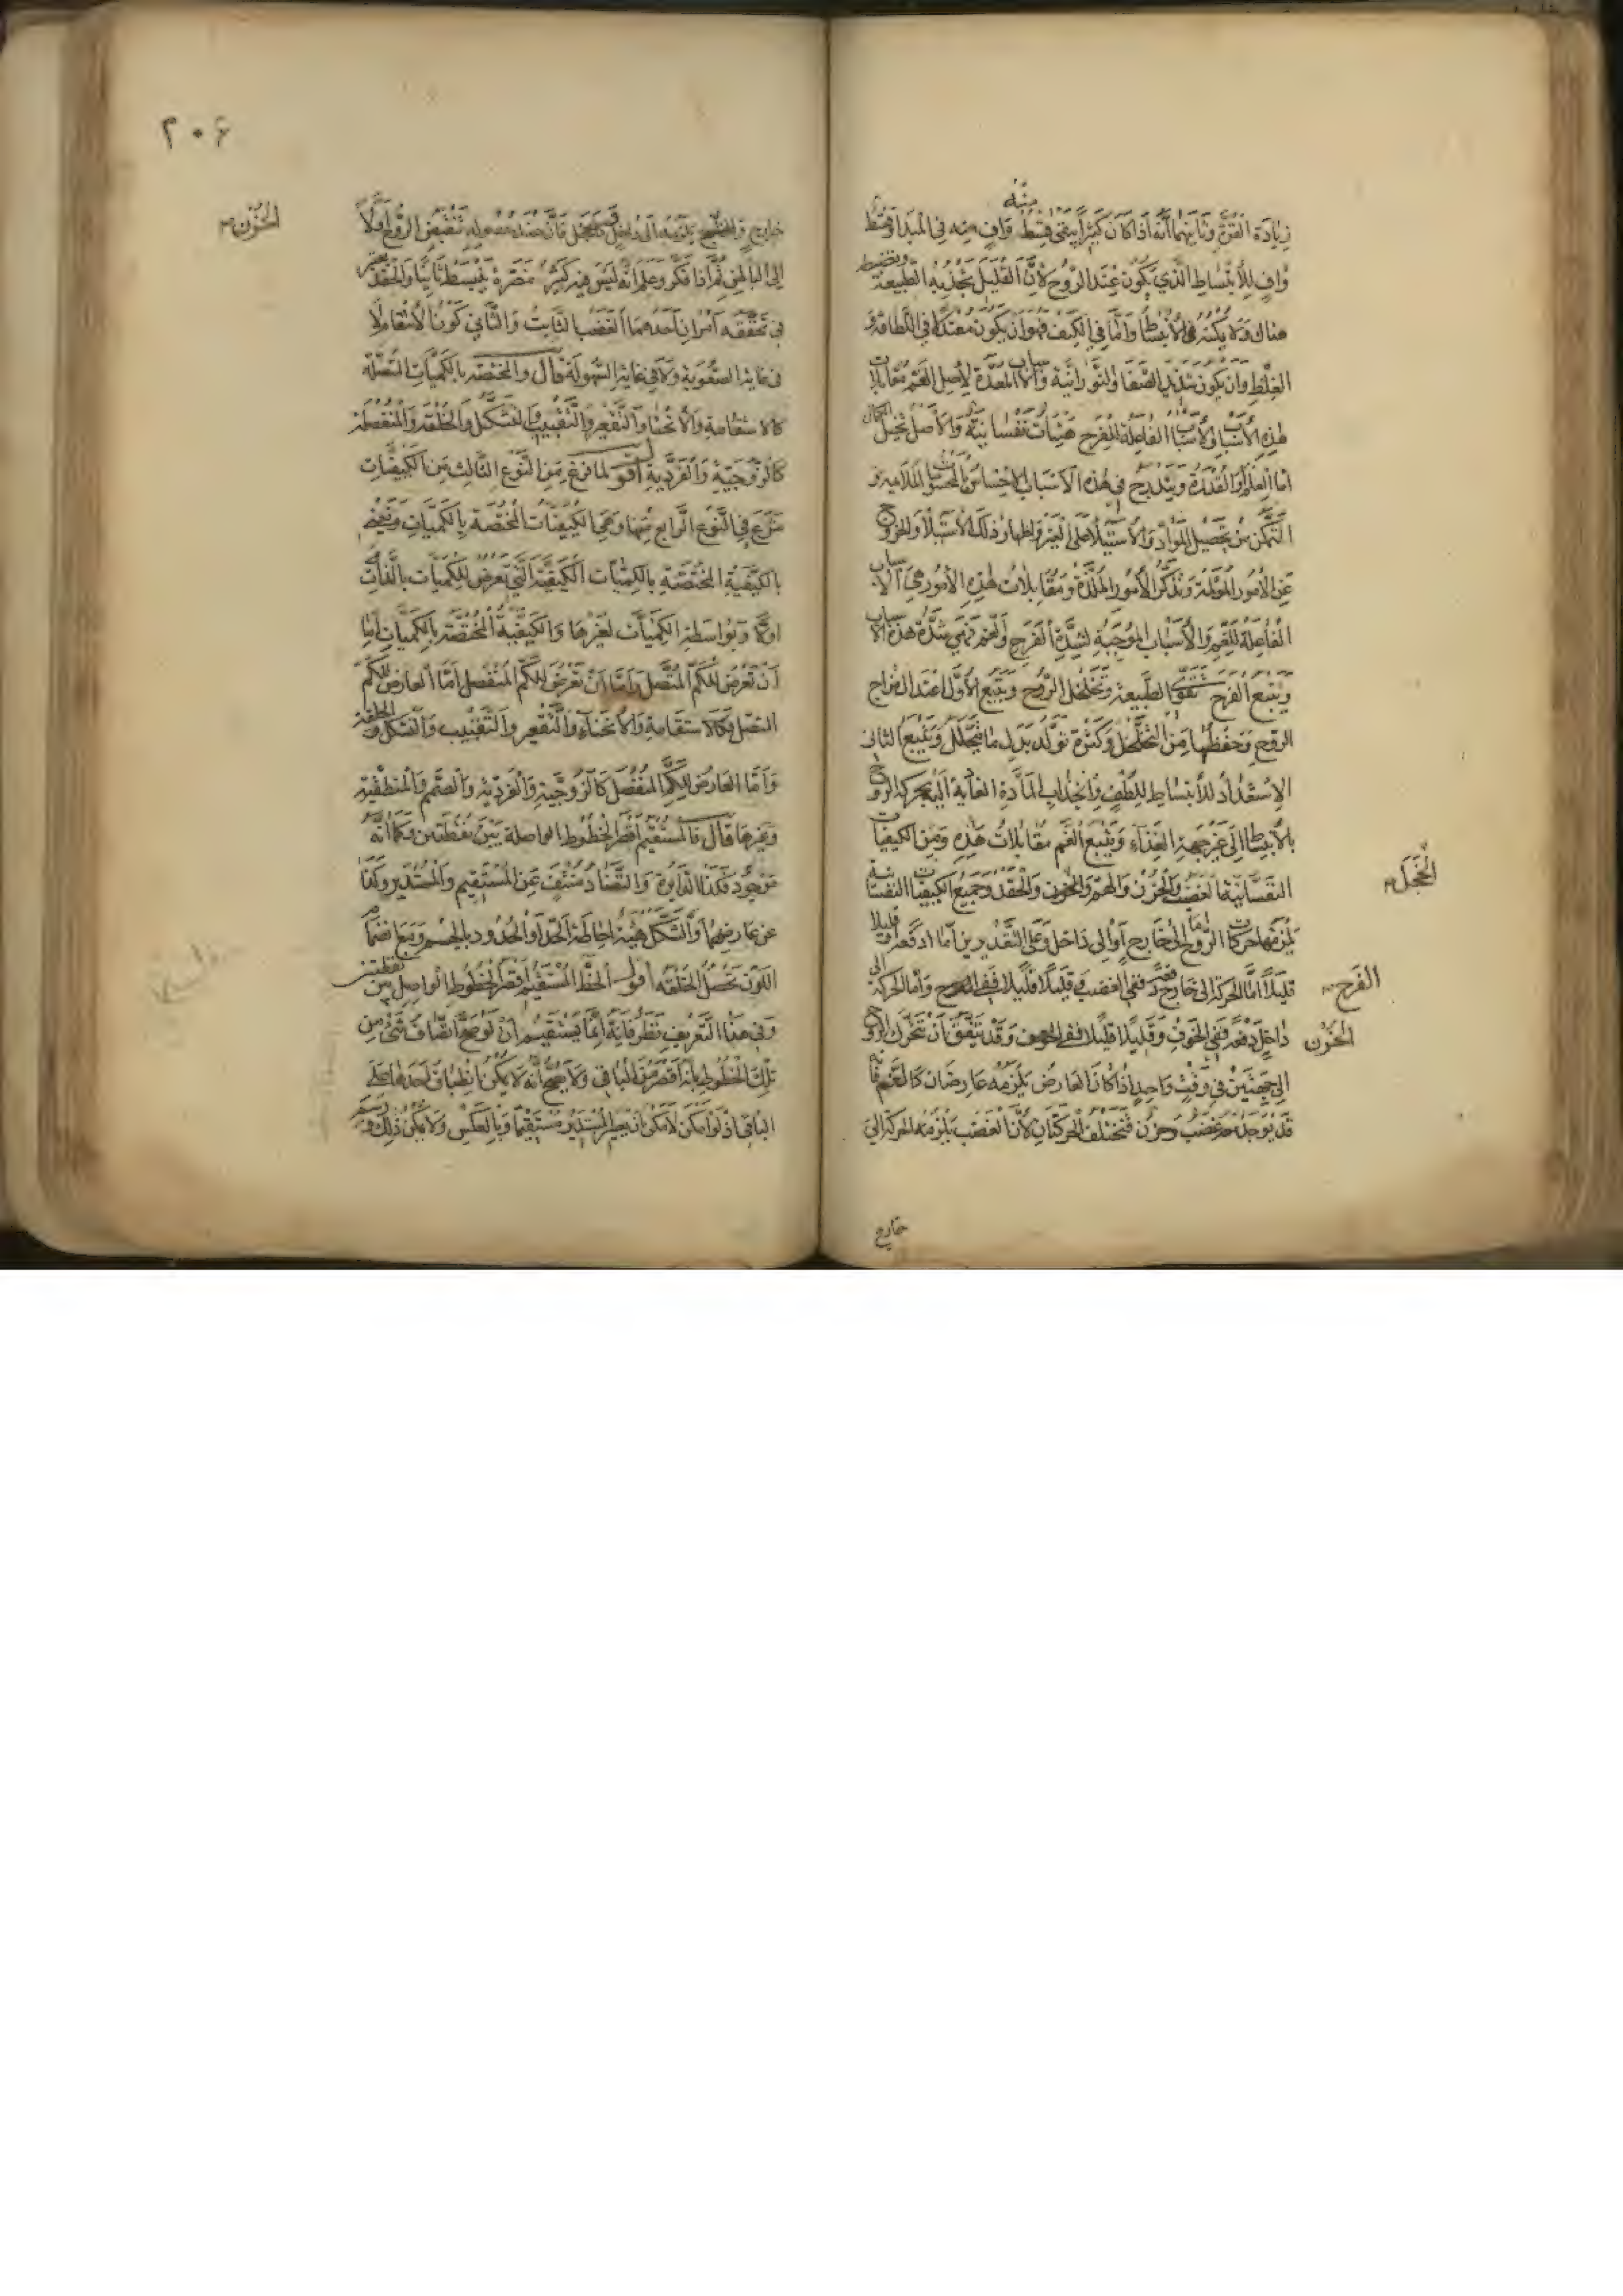 زيادة القوة وثانيهما أنه اذا كان كثيرا يبقى قسط واف منه في المبدأ وقسط
واف للانبساط الذي يكون عند الروح لأن القليل تجذبه الطبيعة وتضبطه
هناك ولا يمكنه من الانبساط وأما في الكيف فهو أن يكون معتدلا في اللطافة و
الغلظ وأن يكون شديد الصفا والنورانية والأسباب المعدة لأصل الغم مقابلات
هذه الأسباب والأسباب الفاعلة للفرح هيئات نفسانية والأصل تخيل الكمال
أما العلم أو القدرة ويندرج في هذه الأسباب الاحساس بالمحسوسات الملايمة و
التمكن من تحصيل المراد والاستيلاء على الغير واظهار ذلك الاستيلاء والخروج
عن الأمور المؤلمة وتذكر الأمور الملذة ومقابلات هذه الأمور هي الأسباب
الفاعلة للغم والأسباب الموجبة لشدة الفرح والغم فهي شدة هذه الأسباب
ويتبع الفرح تقوى الطبيعة وتخلخل الروح ويتبع الأول اعتدال مزاج
الروح وحفظها من التخلخل وكثرة تولد بدل ما يتحلل ويتبع الثاني
الاستعداد للانبساط للطف وانجذاب المادة الغاذية اليه بحركة الروح
بالانبساط الى غير جهة الغذاء ويتبع الغم مقابلات هذه ومن الكيفيات
النفسانية الغضب والحزن والهم والخوف والحقد وجميع الكيفيات النفسانية
يلزمها حركات الروح اما الى خارج أو الى داخل وعلى التقديرين أما دفعة أو قليلا
قليلا أما الحركة الى خارج دفعة ففي الغضب وقليلا قليلا ففي الفرح وأما الحركة الى
داخل دفعة ففي الخوف وقليلا قليلا ففي وقد يتفق أن تتحرك الروح
الى جهتين في وقت واحد اذا كان العارض يلزمه عارضان كالهم فانه
قد يوجد معه غضب وحزن فتختلف الحركتان لأن الغضب يلزمه الحركة الى
خارج
الخجل
الفرح
الحزن
٢٠٦
الحزن
خارج والحزن يلزمه الى داخل وكالخجل فان عند حصوله تنقبض الروح أولا
الى الباطن ثم اذا فكر وعلم أنه ليس فيه كثير مضرة ينبسط ثانيا والحقد يعتبر
في تحققه أمران أحدهما الغضب الثابت والثاني كون الانتقام لا
في غاية الصعوبة ولا في غاية السهولة قال والمختصة بالكميات المتصلة
كالاستقامة والانحنا والتقعير والتقبيب والشكل والخلقة والمنفصلة
كالزوجية والفردية أقول لما فرغ من النوع الثالث من الكيفيات
شرع في النوع الرابع منها وهي الكيفيات المختصة بالكميات ونعني
بالكيفية المختصة بالكميات الكيفية التي تعرض للكميات بالذات
أولا وبواسطة الكميات لغيرها والكيفية المختصة بالكميات اما
أن تعرض للكم المتصل واما أن تعرض للكم المنفصل أما العارض للكم
المتصل فكالاستقامة والانحناء والتقعير والتقبيب والشكل والخلقة
وأما العارض للكم المنفصل كالزوجية والفردية والصمم والمنطقية
وغيرها قال فالمستقيم أقصر الخطوط الواصلة بين نقطتين وكما أنه
موجود فكذا الدايرة والتضاد منتف عن المستقيم والمستدير وكذا
عن عارضهما والشكل هيئة احاطة الحد أو الحدود بالجسم ومع انضمام
اللون تحصل الخلقة أقول الخط المستقيم أقصر الخطوط الواصل بين نقطتين
وفي هذا التعريف نظر فانه انما يستقيم أن لو صح اتصاف شيء من
تلك الخطوط بأنه أقصر من الباقي ولا يصح أنه لا يمكن انطباق أحدها على
الباقي اذ لو أمكن لأمكن أن يصير المستدير مستقيما وبالعكس ولا يمكن ذلك